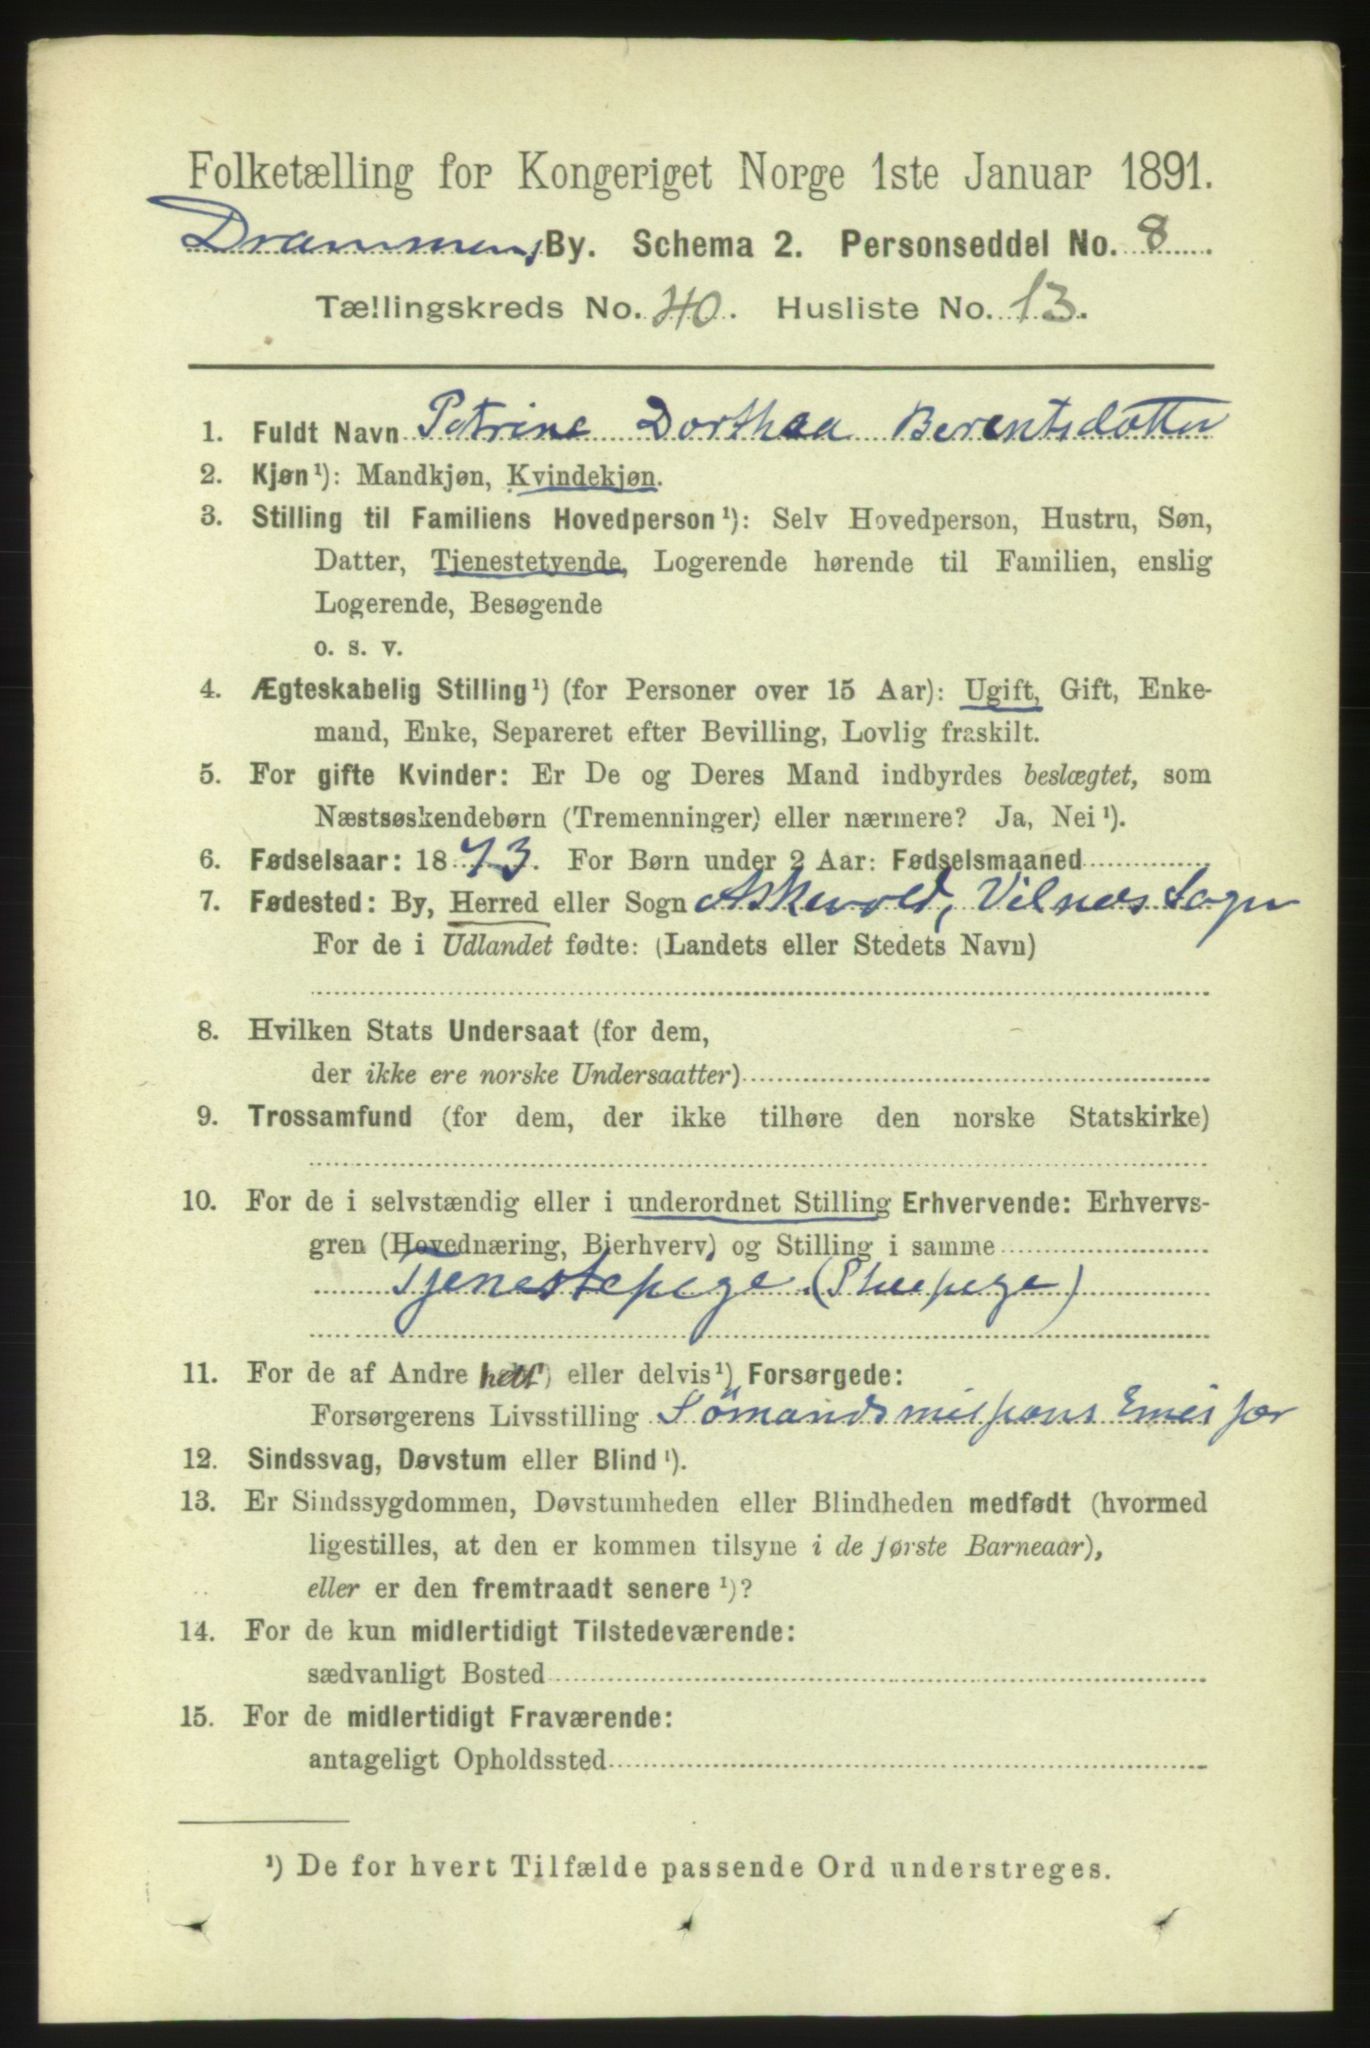 Folketælling for Kongeriget Norge 1ste Januar 1891.
Drammens By. Schema 2. Personseddel No. 8
Tællingskreds No. 40. Husliste No. 13.
1. Fuldt Navn Petrine Dorthea Berentsdatter
2. Kjøn¹): Mandkjøn, Kvindekjøn.
3. Stilling til Familiens Hovedperson¹): Selv Hovedperson, Hustru, Søn,
Datter, Tjenestetyende, Logerende hørende til Familien, enslig
Logerende, Besøgende
o. s. v.
4. Ægteskabelig Stilling¹) (for Personer over 15 Aar): Ugift, Gift, Enke-
mand, Enke, Separeret efter Bevilling, Lovlig fraskilt.
5. For gifte Kvinder: Er De og Deres Mand indbyrdes beslægtet, som
Næstsøskendebørn (Tremenninger) eller nærmere? Ja, Nei¹).
6. Fødselsaar: 1873. For Børn under 2 Aar: Fødselsmaaned
7. Fødested: By, Herred eller Sogn Askevold, Vilnæs Sogn
For de i Udlandet fødte: (Landets eller Stedets Navn)
8. Hvilken Stats Undersaat (for dem,
der ikke ere norske Undersaatter)
9. Trossamfund (for dem, der ikke tilhøre den norske Statskirke)
10. For de i selvstændig eller i underordnet Stilling Erhvervende: Erhvervs-
gren (Hovednæring, Bierhverv) og Stilling i samme
Tjenestepige (Stuepige)
11. For de af Andre helt¹) eller delvis¹) Forsørgede:
Forsørgerens Livsstilling Sömandsmis
12. Sindssvag, Døvstum eller Blind¹).
13. Er Sindssygdommen, Døvstumheden eller Blindheden medfødt (hvormed
ligestilles, at den er kommen tilsyne i de første Barneaar),
eller er den fremtraadt senere¹)?
14. For de kun midlertidigt Tilstedeværende:
sædvanligt Bosted
15. For de midlertidigt Fraværende:
antageligt Opholdssted
¹) De for hvert Tilfælde passende Ord understreges.